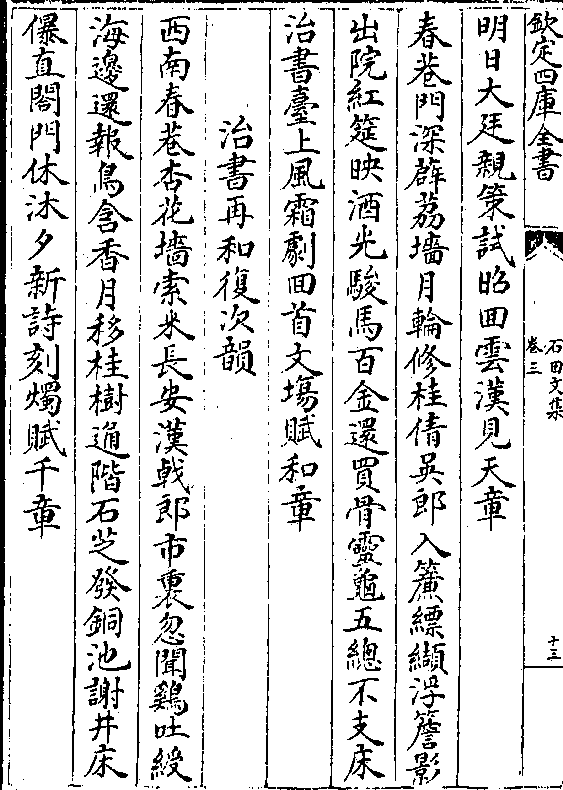 欽定四庫全書
石田文集
卷三
十三
明日大廷親策試昭囬雲漢見天章
春巷門深薜荔墻月輪修桂倩吳郎入簾縹纈浮簷影
出院紅筵映酒光駿馬百金還買骨靈龜五總不支床
治書臺上風霜劇囬首文塲賦和章
治書再和復次韻
西南春巷杏花墻索米長安漢戟郎市裏忽聞鷄吐綬
海邊還報鳥含香月移桂樹通階石芝發銅池謝井床
儤直閣門休沐夕新詩刻燭賦千章